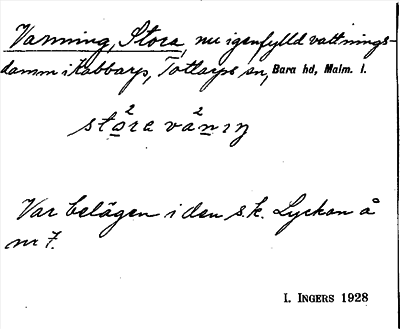 Vanning, Stora, nu igenfylld vattnings-
damm i Kabbarp, Tottarps sn, Bara hd, Malm. l.
sto²ra va²nıŋ
Var belägen i den s.k. Lyckan å
nr 7.
I. INGERS 1928